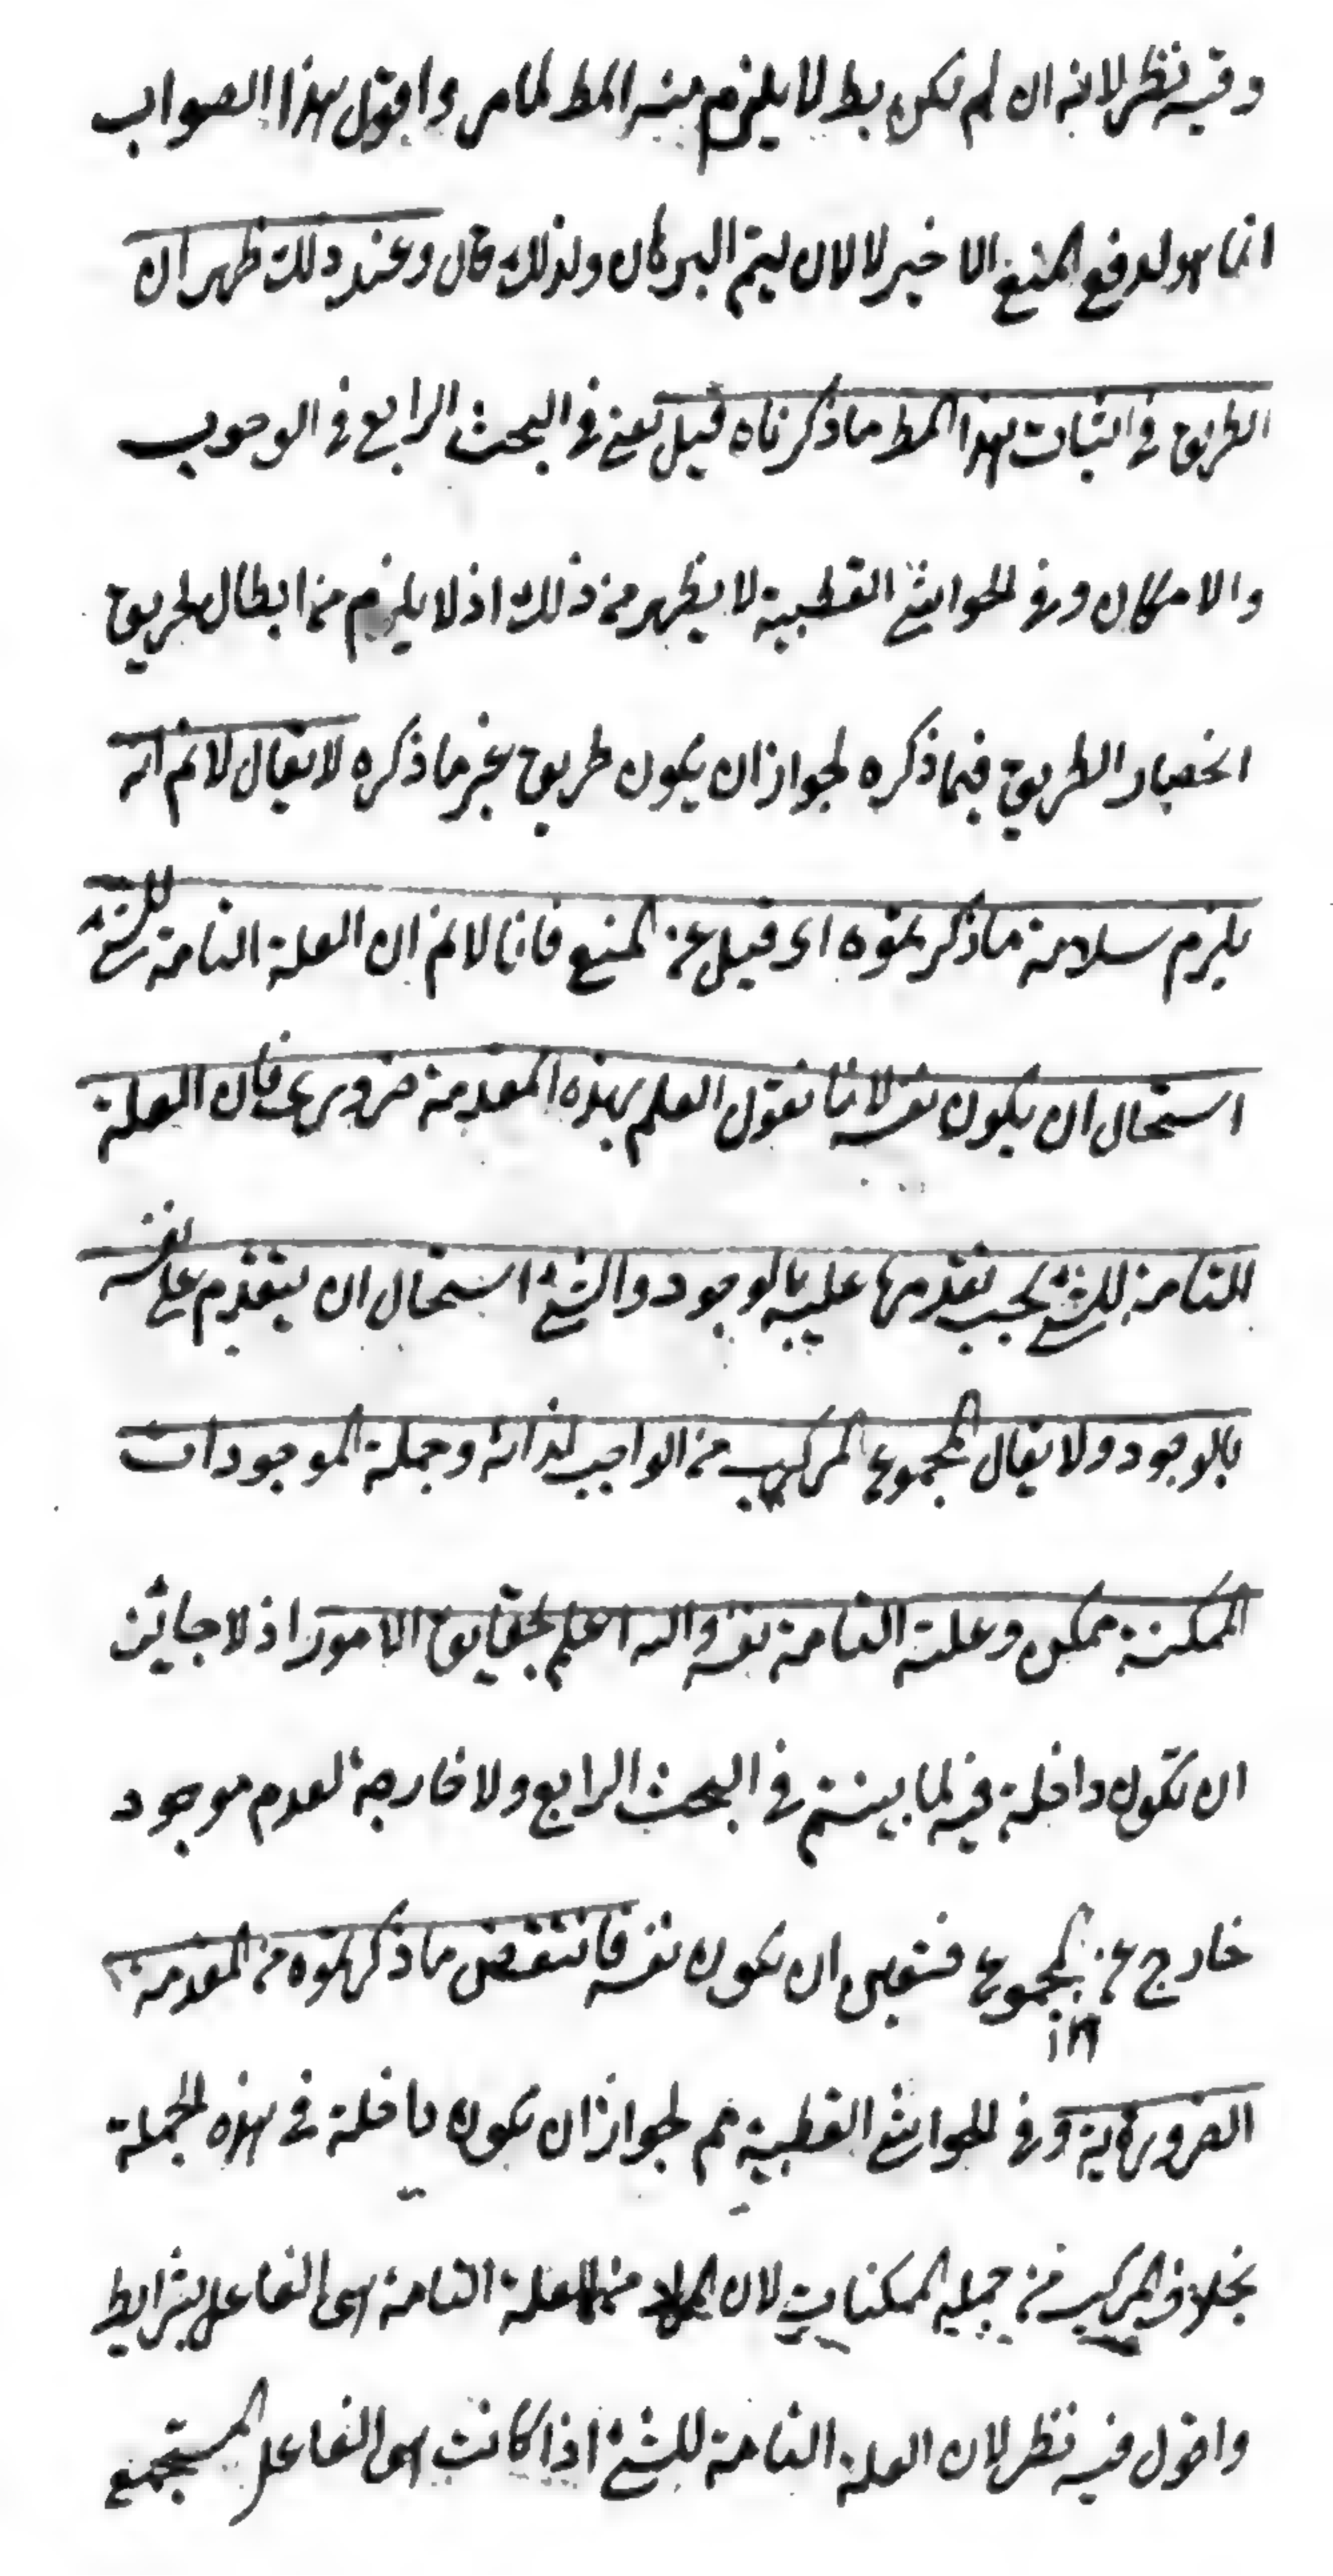 وفيه نظر لانه ان لم تكن بط لا يلزم منه المط لما مر واقول هذا الصواب
انما هو لدفع المنع الاخير لا لان ليتم البرهان ولذلك قال وعند ذلك ظهر ان
الطريق في اثبات هذا المط ما ذكرناه قبل يعني في البحث الرابع في الوجوب
والامكان وفي الحواشي القطبية لا يظهر من ذلك اذ لا يلزم من ابطال طريق
انحصار الطريق فيما ذكره لجواز ان يكون طريق غير ما ذكره لا يقال لا نم انه
يلزم سلامة ما ذكرتموه اي قبل عن المنع فانا لا نم ان العلة التامة للشئ
استحال ان يكون نفسه لانا نقول العلم بهذه المقدمة ضروري فان العلة
التامة للشئ يجب تقدمها عليه بالوجود والشئ استحال ان يتقدم على نفسه
بالوجود ولا يقال المجموع المركب من الواجب لذاته وجملة الموجودات
الممكنة ممكن وعلته التامة نفسه والله اعلم بحقايق الامور اذ لا جائز
ان تكون داخلة فيه لما بينتم في البحث الرابع ولا خارجة لعدم موجود
خارج عن المجموع فتعين ان يكون نفسه فانتقض ما ذكرتموه من المقدمة
الضرورية وفي الحواشي القطبية مم لجواز ان يكون داخلة في هذه الجملة
بخلاف المركب من جملة الممكنات لان العلة التامة هي الفاعل بشرايط
واقول فيه نظر لان العلة التامة للشئ اذا كانت هي الفاعل المستجمع